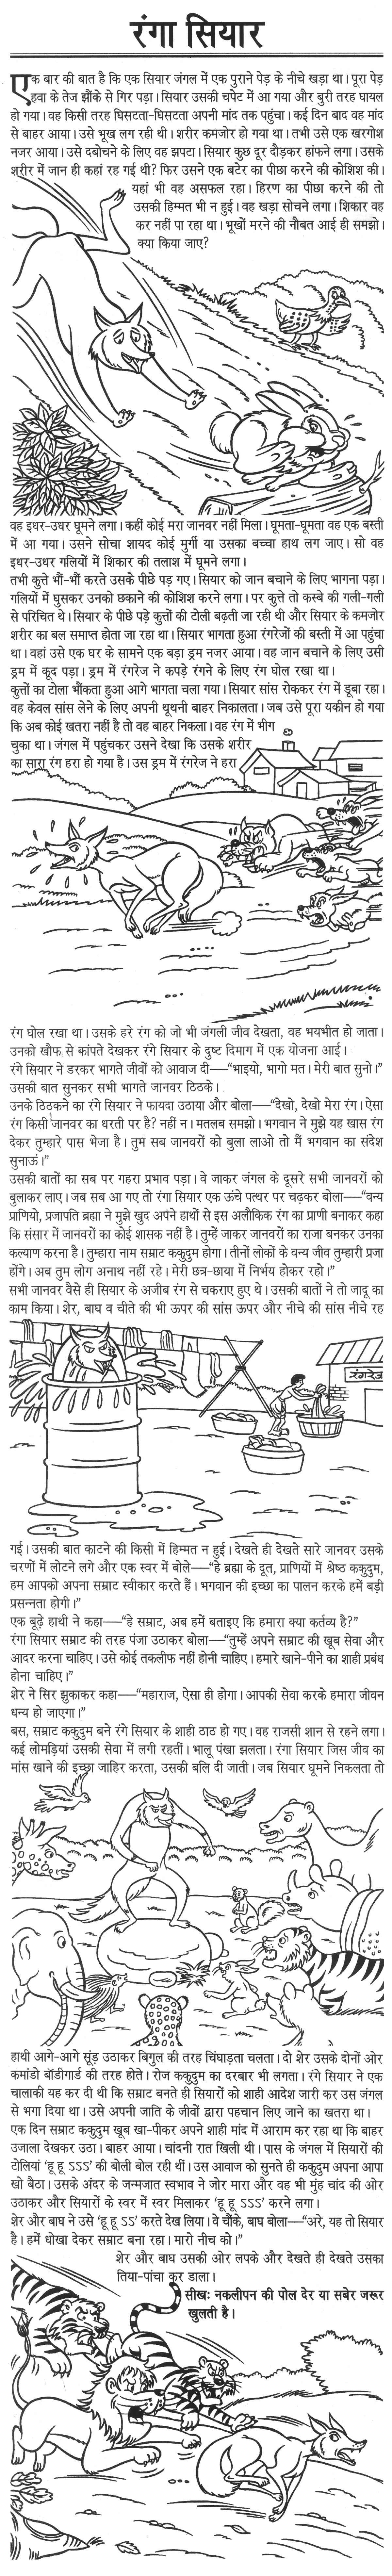 रंगा सियार
एक बार की बात है कि एक सियार जंगल में एक पुराने पेड़ के नीचे खड़ा था। पूरा पेड़
हवा के तेज झौंके से गिर पड़ा। सियार उसकी चपेट में आ गया और बुरी तरह घायल
हो गया। वह किसी तरह घिसटता-घिसटता अपनी मांद तक पहुंचा। कई दिन बाद वह मांद
से बाहर आया। उसे भूख लग रही थी। शरीर कमजोर हो गया था। तभी उसे एक खरगोश
नजर आया। उसे दबोचने के लिए वह झपटा। सियार कुछ दूर दौड़कर हांफने लगा। उसके
शरीर में जान ही कहां रह गई थी? फिर उसने एक बटेर का पीछा करने की कोशिश की।
यहां भी वह असफल रहा। हिरण का पीछा करने की तो
उसकी हिम्मत भी न हुई। वह खड़ा सोचने लगा। शिकार वह
कर नहीं पा रहा था। भूखों मरने की नौबत आई ही समझो।
क्या किया जाए?
वह इधर-उधर घूमने लगा। कहीं कोई मरा जानवर नहीं मिला। घूमता-घूमता वह एक बस्ती
में आ गया। उसने सोचा शायद कोई मुर्गी या उसका बच्चा हाथ लग जाए। सो वह
इधर-उधर गलियों में शिकार की तलाश में घूमने लगा।
तभी कुत्ते भौं-भौं करते उसके पीछे पड़ गए। सियार को जान बचाने के लिए भागना पड़ा।
गलियों में घुसकर उनको छकाने की कोशिश करने लगा। पर कुत्ते तो कस्बे की गली-गली
से परिचित थे। सियार के पीछे पड़े कुत्तों की टोली बढ़ती जा रही थी और सियार के कमजोर
शरीर का बल समाप्त होता जा रहा था। सियार भागता हुआ रंगरेजों की बस्ती में आ पहुंचा
था। वहां उसे एक घर के सामने एक बड़ा ड्रम नजर आया। वह जान बचाने के लिए उसी
ड्रम में कूद पड़ा। ड्रम में रंगरेज ने कपड़े रंगने के लिए रंग घोल रखा था।
कुत्तों का टोला भौंकता हुआ आगे भागता चला गया। सियार सांस रोककर रंग में डूबा रहा।
वह केवल सांस लेने के लिए अपनी थूथनी बाहर निकालता। जब उसे पूरा यकीन हो गया
कि अब कोई खतरा नहीं है तो वह बाहर निकला। वह रंग में भीग
चुका था। जंगल में पहुंचकर उसने देखा कि उसके शरीर
का सारा रंग हरा हो गया है। उस ड्रम में रंगरेज ने हरा
रंग घोल रखा था। उसके हरे रंग को जो भी जंगली जीव देखता, वह भयभीत हो जाता।
उनको खौफ से कांपते देखकर रंगे सियार के दुष्ट दिमाग में एक योजना आई।
रंगे सियार ने डरकर भागते जीवों को आवाज दी—“भाइयो, भागो मत। मेरी बात सुनो।”
उसकी बात सुनकर सभी भागते जानवर ठिठके।
उनके ठिठकने का रंगे सियार ने फायदा उठाया और बोला—“देखो, देखो मेरा रंग। ऐसा
रंग किसी जानवर का धरती पर है? नहीं न। मतलब समझो। भगवान ने मुझे यह खास रंग
देकर तुम्हारे पास भेजा है। तुम सब जानवरों को बुला लाओ तो मैं भगवान का संदेश
सुनाऊं।”
उसकी बातों का सब पर गहरा प्रभाव पड़ा। वे जाकर जंगल के दूसरे सभी जानवरों को
बुलाकर लाए। जब सब आ गए तो रंगा सियार एक ऊंचे पत्थर पर चढ़कर बोला—“वन्य
प्राणियो, प्रजापति ब्रह्मा ने मुझे खुद अपने हाथों से इस अलौकिक रंग का प्राणी बनाकर कहा
कि संसार में जानवरों का कोई शासक नहीं है। तुम्हें जाकर जानवरों का राजा बनकर उनका
कल्याण करना है। तुम्हारा नाम सम्राट ककुदुम होगा। तीनों लोकों के वन्य जीव तुम्हारी प्रजा
होंगे। अब तुम लोग अनाथ नहीं रहे। मेरी छत्र-छाया में निर्भय होकर रहो।”
सभी जानवर वैसे ही सियार के अजीब रंग से चकराए हुए थे। उसकी बातों ने तो जादू का
काम किया। शेर, बाघ व चीते की भी ऊपर की सांस ऊपर और नीचे की सांस नीचे रह
रंगरेज
गई। उसकी बात काटने की किसी में हिम्मत न हुई। देखते ही देखते सारे जानवर उसके
चरणों में लोटने लगे और एक स्वर में बोले—“हे ब्रह्मा के दूत, प्राणियों में श्रेष्ठ ककुदुम,
हम आपको अपना सम्राट स्वीकार करते हैं। भगवान की इच्छा का पालन करके हमें बड़ी
प्रसन्नता होगी।”
एक बूढ़े हाथी ने कहा—“हे सम्राट, अब हमें बताइए कि हमारा क्या कर्तव्य है?”
रंगा सियार सम्राट की तरह पंजा उठाकर बोला—“तुम्हें अपने सम्राट की खूब सेवा और
आदर करना चाहिए। उसे कोई तकलीफ नहीं होनी चाहिए। हमारे खाने-पीने का शाही प्रबंध
होना चाहिए।”
शेर ने सिर झुकाकर कहा—“महाराज, ऐसा ही होगा। आपकी सेवा करके हमारा जीवन
धन्य हो जाएगा।”
बस, सम्राट ककुदुम बने रंगे सियार के शाही ठाठ हो गए। वह राजसी शान से रहने लगा।
कई लोमड़ियां उसकी सेवा में लगी रहतीं। भालू पंखा झलता। रंगा सियार जिस जीव का
मांस खाने की इच्छा जाहिर करता, उसकी बलि दी जाती। जब सियार घूमने निकलता तो
हाथी आगे-आगे सूंड़ उठाकर बिगुल की तरह चिंघाड़ता चलता। दो शेर उसके दोनों ओर
कमांडो बॉडीगार्ड की तरह होते। रोज ककुदुम का दरबार भी लगता। रंगे सियार ने एक
चालाकी यह कर दी थी कि सम्राट बनते ही सियारों को शाही आदेश जारी कर उस जंगल
से भगा दिया था। उसे अपनी जाति के जीवों द्वारा पहचान लिए जाने का खतरा था।
एक दिन सम्राट ककुदुम खूब खा-पीकर अपने शाही मांद में आराम कर रहा था कि बाहर
उजाला देखकर उठा। बाहर आया। चांदनी रात खिली थी। पास के जंगल में सियारों की
टोलियां ‘हू हू ऽऽऽ’ की बोली बोल रही थीं। उस आवाज को सुनते ही ककुदुम अपना आपा
खो बैठा। उसके अंदर के जन्मजात स्वभाव ने जोर मारा और वह भी मुंह चांद की ओर
उठाकर और सियारों के स्वर में स्वर मिलाकर ‘हू हू ऽऽऽ’ करने लगा।
शेर और बाघ ने उसे ‘हू हू ऽऽ’ करते देख लिया। वे चौंके, बाघ बोला—“अरे, यह तो सियार
है। हमें धोखा देकर सम्राट बना रहा। मारो नीच को।”
शेर और बाघ उसकी ओर लपके और देखते ही देखते उसका
तिया-पांचा कर डाला।
सीखः नकलीपन की पोल देर या सबेर जरूर
खुलती है।